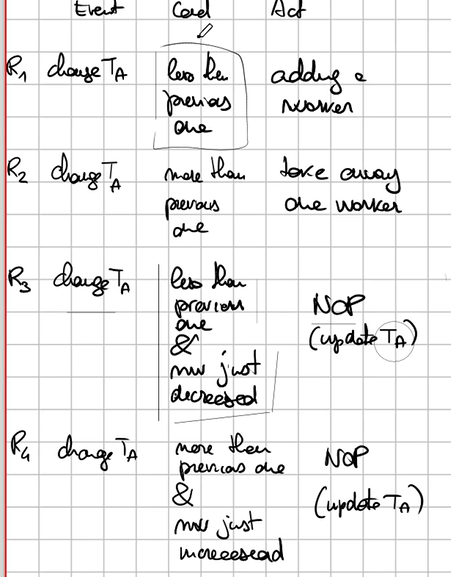 Event Cond Act
R1 change TA less than previous one adding a worker
R2 change TA more than previous one take away one worker
R3 change TA less than previous one & nw just decreesed NOP (update TA)
R4 change TA more then previous one & nw just increeesead NOP (update TA)